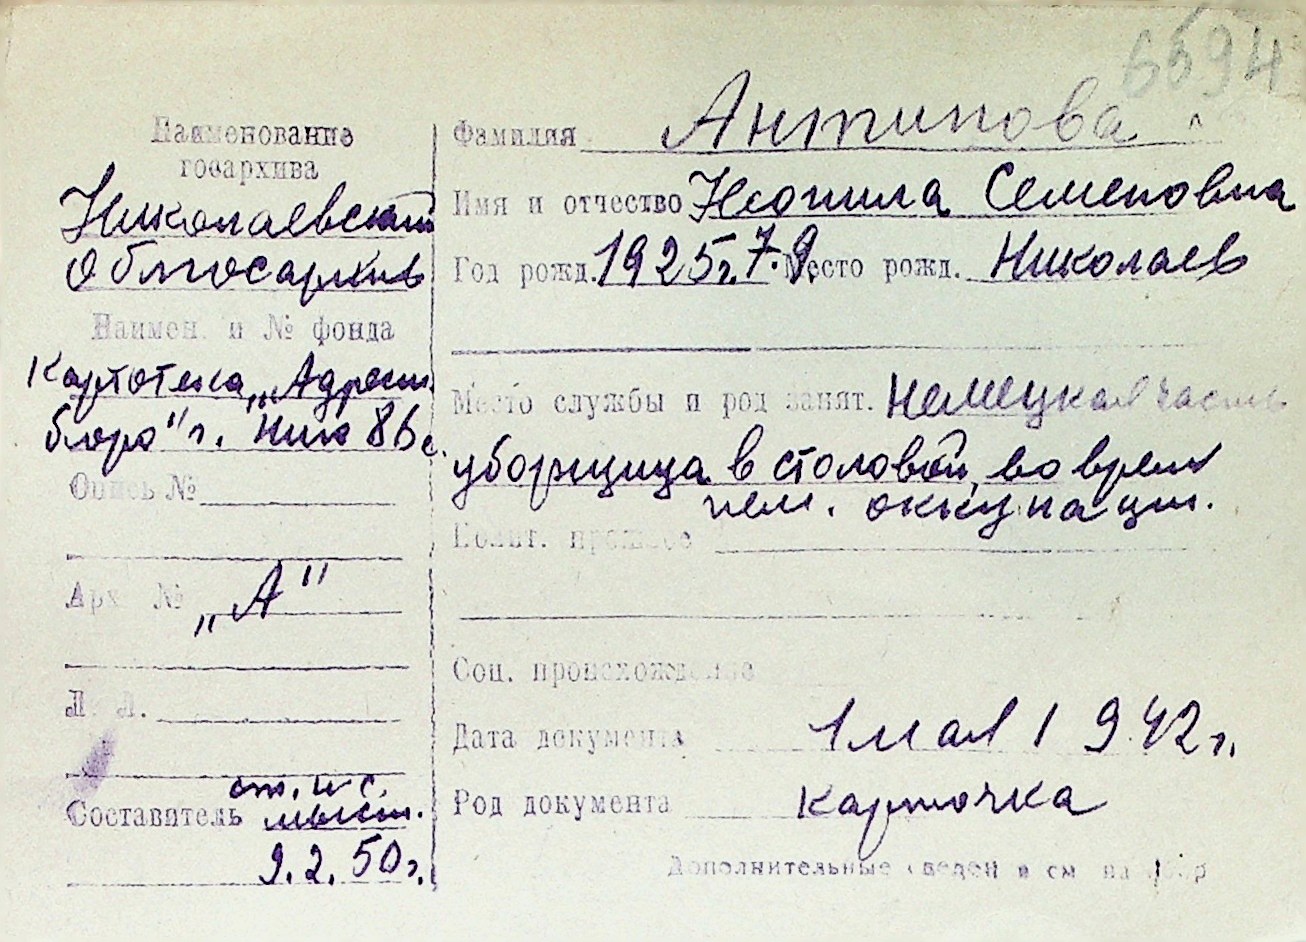 6594
Наименование
госархива
Николаевский
Облгосархив
Наимен. и № фонда
Картотека „Адресн.
бюро" г. Ник 86 с.
Опись №
Арх. №
„А"
Л. Л.
Составитель ст. н. с.
9.2.50г.
Фамилия Антипова
Имя и отчество Неонила Семеновна
Год рожд. 1925г. 7.9. Место рожд. Николаев
Место службы и род занят. Немецкая часть
уборщица в столовой, во время
нем. оккупации.
Полит. прошлое
Соц. происхождение
Дата документа 1 мая 1942г.
Род документа карточка
Дополнительные сведен я см на обор